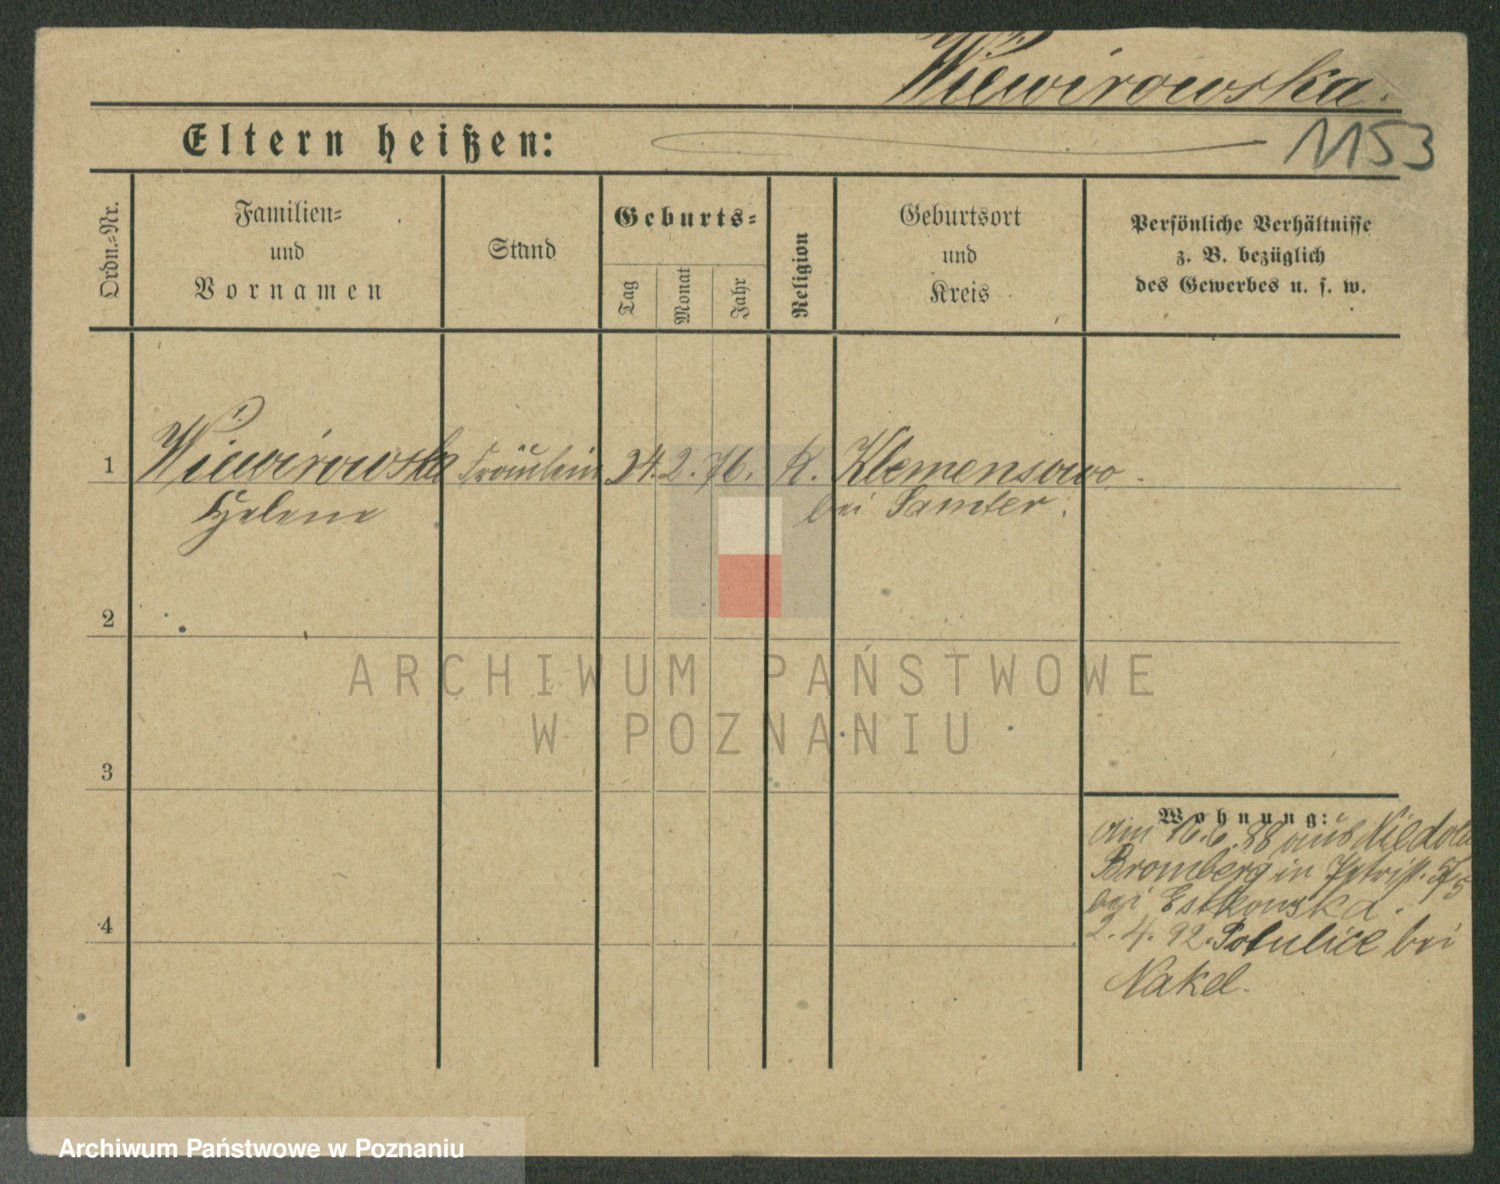 Wiewirowska.
Eltern heißen:
1153
Ordn.=Nr.
Familien=
und
Vornamen
Stand
Geburts=
Tag
Monat
Jahr
Religion
Geburtsort
und
Kreis
Persönliche Verhältnisse
z. B. bezüglich
des Gewerbes u. s. w.
1
Wiewirowska Fräulein 24. 2. 76. K. Klemensowo
Helene
bei Samter.
2
3
4
Wohnung:
am 16.6.88 aus
Bromberg in 5/5
bei Estkowska.
2. 4. 92. Potulice bei
Nakel.
ARCHIWUM PAŃSTWOWE
W POZNANIU
Archiwum Państwowe w Poznaniu